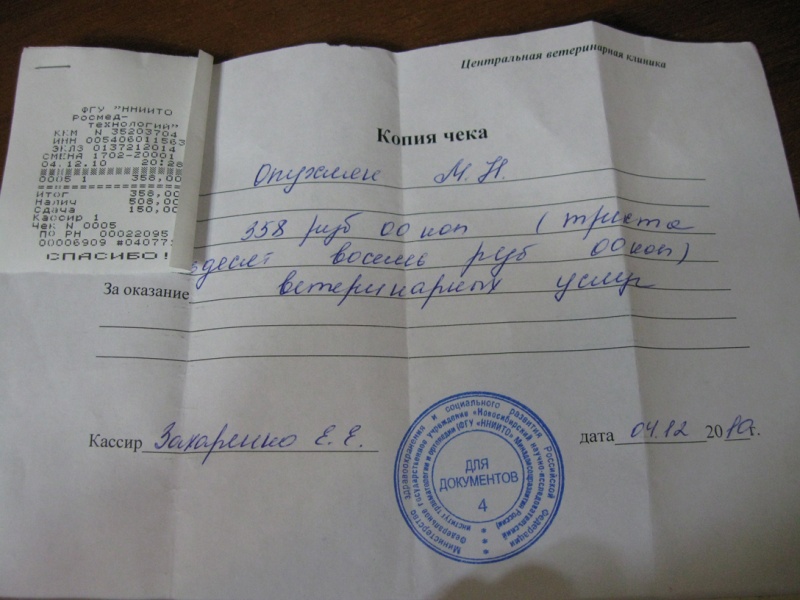 Центральная ветеринарная клиника
ФГУ "ННИИТО
Росмед-
технологий"
ККМ N 35203704
ИНН 005406011563
ЭКЛЗ 0137212014
СМЕНА 1702-Z0001
04.12.10 20:28
0005 1 358,00
Итог 358,00
Налич 508,00
Сдача 150,00
Кассир 1
Чек N 0005
ПО РН 00022095
00006909 #040773
СПАСИБО!
Копия чека
М. Н.
358 руб 00 коп (триста
здесят восемь руб 00 коп)
За оказание ветеринарных услуг
Кассир Захаренко Е. Е.
дата 04.12 2010г.
Министерство здравоохранения и социального развития Российской Федерации
Федеральное государственное учреждение «Новосибирский научно-исследовательский
институт травматологии и ортопедии (ФГУ «ННИИТО» Минздравсоцразвития России)
ДЛЯ
ДОКУМЕНТОВ
4